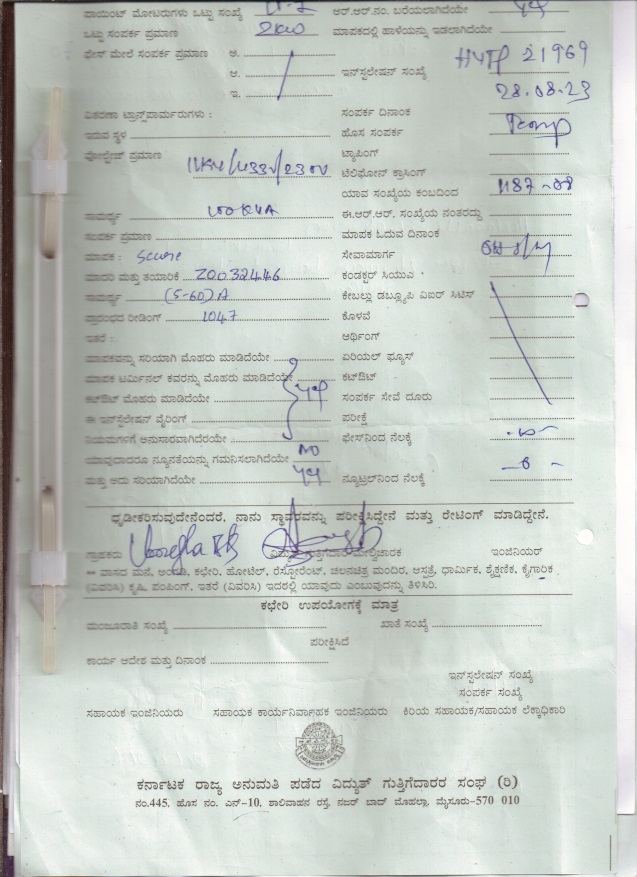 ಪಾಯಿಂಟ್ ಮೋಟರುಗಳು ಒಟ್ಟು ಸಂಖ್ಯೆ ಆರ್.ಆರ್.ನಂ. ಬರೆಯಲಾಗಿದೆಯೇ
ಒಟ್ಟು ಸಂಪರ್ಕ ಪ್ರಮಾಣ 2kw ಮಾಪಕದಲ್ಲಿ ಹಾಳೆಯನ್ನು ಇಡಲಾಗಿದೆಯೇ
ಫೇಸ್ ಮೇಲೆ ಸಂಪರ್ಕ ಪ್ರಮಾಣ ಅ.
ಆ. ಇನ್‌ಸ್ಟಲೇಷನ್ ಸಂಖ್ಯೆ 21969
ಇ. 28.08.23
ವಿತರಣಾ ಟ್ರಾನ್ಸ್‌ಫಾರ್ಮರುಗಳು : ಸಂಪರ್ಕ ದಿನಾಂಕ
ಇರುವ ಸ್ಥಳ ಹೊಸ ಸಂಪರ್ಕ
ವೋಲ್ಟೇಜ್ ಪ್ರಮಾಣ 11KV/433V/230V ಟ್ಯಾಪಿಂಗ್
ಟೆಲಿಫೋನ್ ಕ್ರಾಸಿಂಗ್
ಯಾವ ಸಂಖ್ಯೆಯ ಕಂಬದಿಂದ
ಸಾಮರ್ಥ್ಯ 100KVA ಈ.ಆರ್.ಆರ್. ಸಂಖ್ಯೆಯ ನಂತರದ್ದು
ಸಂಪರ್ಕ ಪ್ರಮಾಣ ಮಾಪಕ ಓದುವ ದಿನಾಂಕ
ಮಾಪಕ : Secure ಸೇವಾಮಾರ್ಗ
ಮಾದರಿ ಮತ್ತು ತಯಾರಿಕೆ 20032446 ಕಂಡಕ್ಟರ್ ಸಿಯುಎ
ಸಾಮರ್ಥ್ಯ (5-60)A ಕೇಬಲ್ಲು ಡಬ್ಲ್ಯೂಪಿ ವಿಐರ್ ಸಿಟಿಸ್
ಪ್ರಾರಂಭದ ರೀಡಿಂಗ್ 1047 ಕೊಳವೆ
ಇತರೆ : ಆರ್ಥಿಂಗ್
ಮಾಪಕವನ್ನು ಸರಿಯಾಗಿ ಮೊಹರು ಮಾಡಿದೆಯೇ ಏರಿಯಲ್ ಫ್ಯೂಸ್
ಮಾಪಕ ಟರ್ಮಿನಲ್ ಕವರನ್ನು ಮೊಹರು ಮಾಡಿದೆಯೇ ಕಟ್‌ಔಟ್
ಕಟ್‌ಔಟ್ ಮೊಹರು ಮಾಡಿದೆಯೇ ಸಂಪರ್ಕ ಸೇವೆ ದೂರು
ಈ ಇನ್‌ಸ್ಟಲೇಷನ್ ವೈರಿಂಗ್ ಪರೀಕ್ಷೆ
ನಿಯಮಗಳಿಗೆ ಅನುಸಾರವಾಗಿದೆರೆಯೇ ಫೇಸ್‌ನಿಂದ ನೆಲಕ್ಕೆ
ಯಾವುದಾದರೂ ನ್ಯೂನತೆಯನ್ನು ಗಮನಿಸಲಾಗಿದೆಯೇ NO
ಮತ್ತು ಅದು ಸರಿಯಾಗಿದೆಯೇ ನ್ಯೂಟ್ರಲ್‌ನಿಂದ ನೆಲಕ್ಕೆ
ಧೃಡೀಕರಿಸುವುದೇನೆಂದರೆ, ನಾನು ಸ್ಥಾವರವನ್ನು ಪರೀಕ್ಷಿಸಿದ್ದೇನೆ ಮತ್ತು ರೇಟಿಂಗ್ ಮಾಡಿದ್ದೇನೆ.
ಗ್ರಾಹಕರು ಇಂಜಿನಿಯರ್
** ವಾಸದ ಮನೆ, ಅಂಗಡಿ, ಕಛೇರಿ, ಹೋಟೆಲ್, ರೆಸ್ಟೋರೆಂಟ್, ಚಲನಚಿತ್ರ ಮಂದಿರ, ಆಸ್ಪತ್ರೆ, ಧಾರ್ಮಿಕ, ಶೈಕ್ಷಣಿಕ, ಕೈಗಾರಿಕ
(ವಿವರಿಸಿ) ಕೃಷಿ, ಪಂಪಿಂಗ್, ಇತರೆ (ವಿವರಿಸಿ) ಇದರಲ್ಲಿ ಯಾವುದು ಎಂಬುವುದನ್ನು ತಿಳಿಸಿರಿ.
ಕಛೇರಿ ಉಪಯೋಗಕ್ಕೆ ಮಾತ್ರ
ಮಂಜೂರಾತಿ ಸಂಖ್ಯೆ ಖಾತೆ ಸಂಖ್ಯೆ
ಪರೀಕ್ಷಿಸಿದೆ
ಕಾರ್ಯ ಆದೇಶ ಮತ್ತು ದಿನಾಂಕ
ಇನ್‌ಸ್ಟಲೇಷನ್ ಸಂಖ್ಯೆ
ಸಂಪರ್ಕ ಸಂಖ್ಯೆ
ಸಹಾಯಕ ಇಂಜಿನಿಯರು ಸಹಾಯಕ ಕಾರ್ಯನಿರ್ವಾಹಕ ಇಂಜಿನಿಯರು ಕಿರಿಯ ಸಹಾಯಕ/ಸಹಾಯಕ ಲೆಕ್ಕಾಧಿಕಾರಿ
ಕರ್ನಾಟಕ ರಾಜ್ಯ ಅನುಮತಿ ಪಡೆದ ವಿದ್ಯುತ್ ಗುತ್ತಿಗೆದಾರರ ಸಂಘ (ರಿ)
ನಂ.445, ಹೊಸ ನಂ. ಎನ್-10, ಶಾಲಿವಾಹನ ರಸ್ತೆ, ನಜರ್ ಬಾದ್ ಮೊಹಲ್ಲಾ, ಮೈಸೂರು-570 010